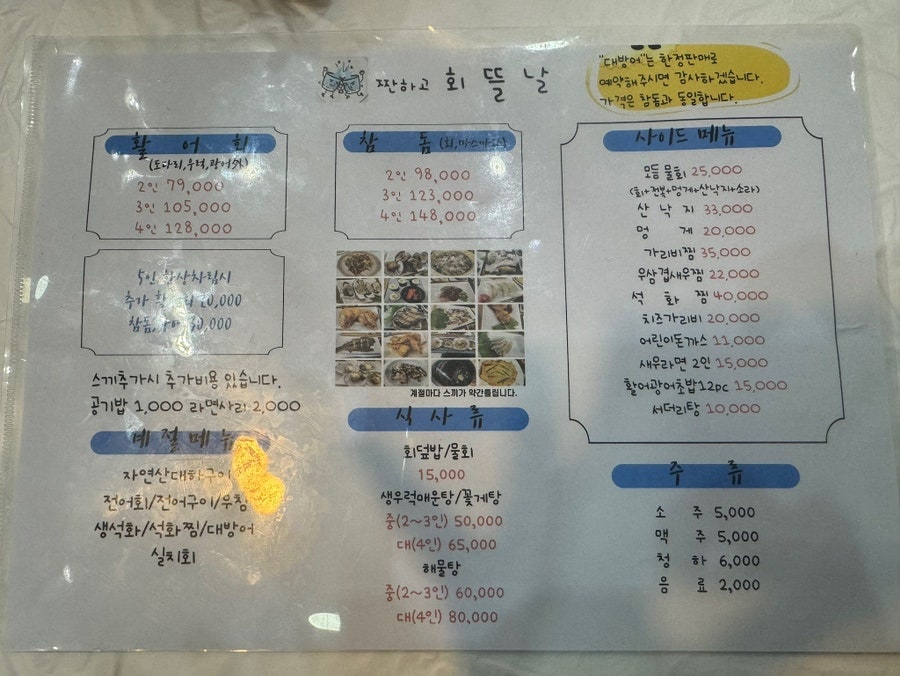 짠하고 회 뜰 날
"대방어"는 한정판매로
예약해주시면 감사하겠습니다.
가격은 참돔과 동일합니다.
활 어 회
(도다리,우럭,광어外)
2인 79,000
3인 105,000
4인 128,000
5인 한상차림시
추가
참돔
스끼추가시 추가비용 있습니다.
공기밥 1,000 라면사리 2,000
계절메뉴
자연산대하구이
전어회/전어구이/무침
생석화/석화찜/대방어
실치회
참 돔 (회,마스까와)
2인 98,000
3인 123,000
4인 148,000
계절마다 스끼가 약간틀립니다.
식 사 류
회덮밥/물회
15,000
생우럭매운탕/꽃게탕
중(2~3인) 50,000
대(4인) 65,000
해물탕
중(2~3인) 60,000
대(4인) 80,000
사이드 메뉴
모듬물회 25,000
(회+전복+멍게+산낙지+소라)
산 낙 지 33,000
멍 게 20,000
가리비찜 35,000
우삼겹새우찜 22,000
석 화 찜 40,000
치즈가리비 20,000
어린이돈까스 11,000
새우라면 2인 15,000
활어광어초밥12pc 15,000
서더리탕 10,000
주 류
소 주 5,000
맥 주 5,000
청 하 6,000
음 료 2,000